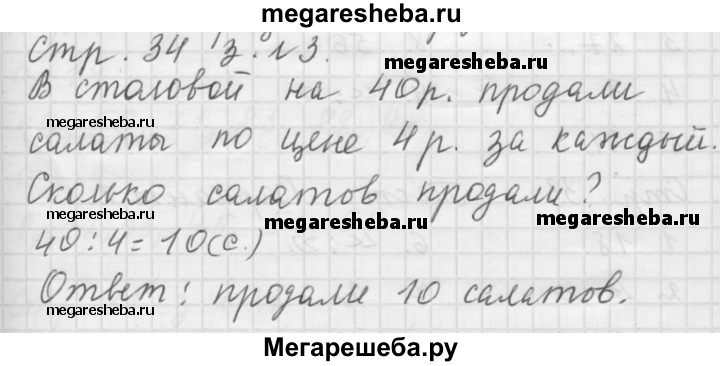 megaresheba.ru
Стр. 34 з. №3.
megaresheba.ru
В столовой на 40 р. продали
megaresheba.ru
салаты по цене 4 р. за каждый.
Сколько салатов продали?
megaresheba.ru
megaresheba.ru
megaresheba.ru
40 : 4 = 10 (с.)
Ответ: продали 10 салатов.
megaresheba.ru
Мегарешеба.ру